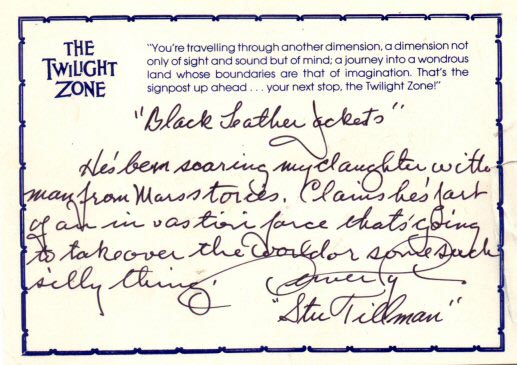 THE
TWILIGHT
ZONE
"You're travelling through another dimension, a dimension not
only of sight and sound but of mind; a journey into a wondrous
land whose boundaries are that of imagination. That's the
signpost up ahead . . . your next stop, the Twilight Zone!"
"Black Leather Jackets"
He's been scaring my daughter with
man from Mars stories. Claims he's part
of an invastion force that's going
to take over the World or some such
silly thing.
"Stu Tillman"